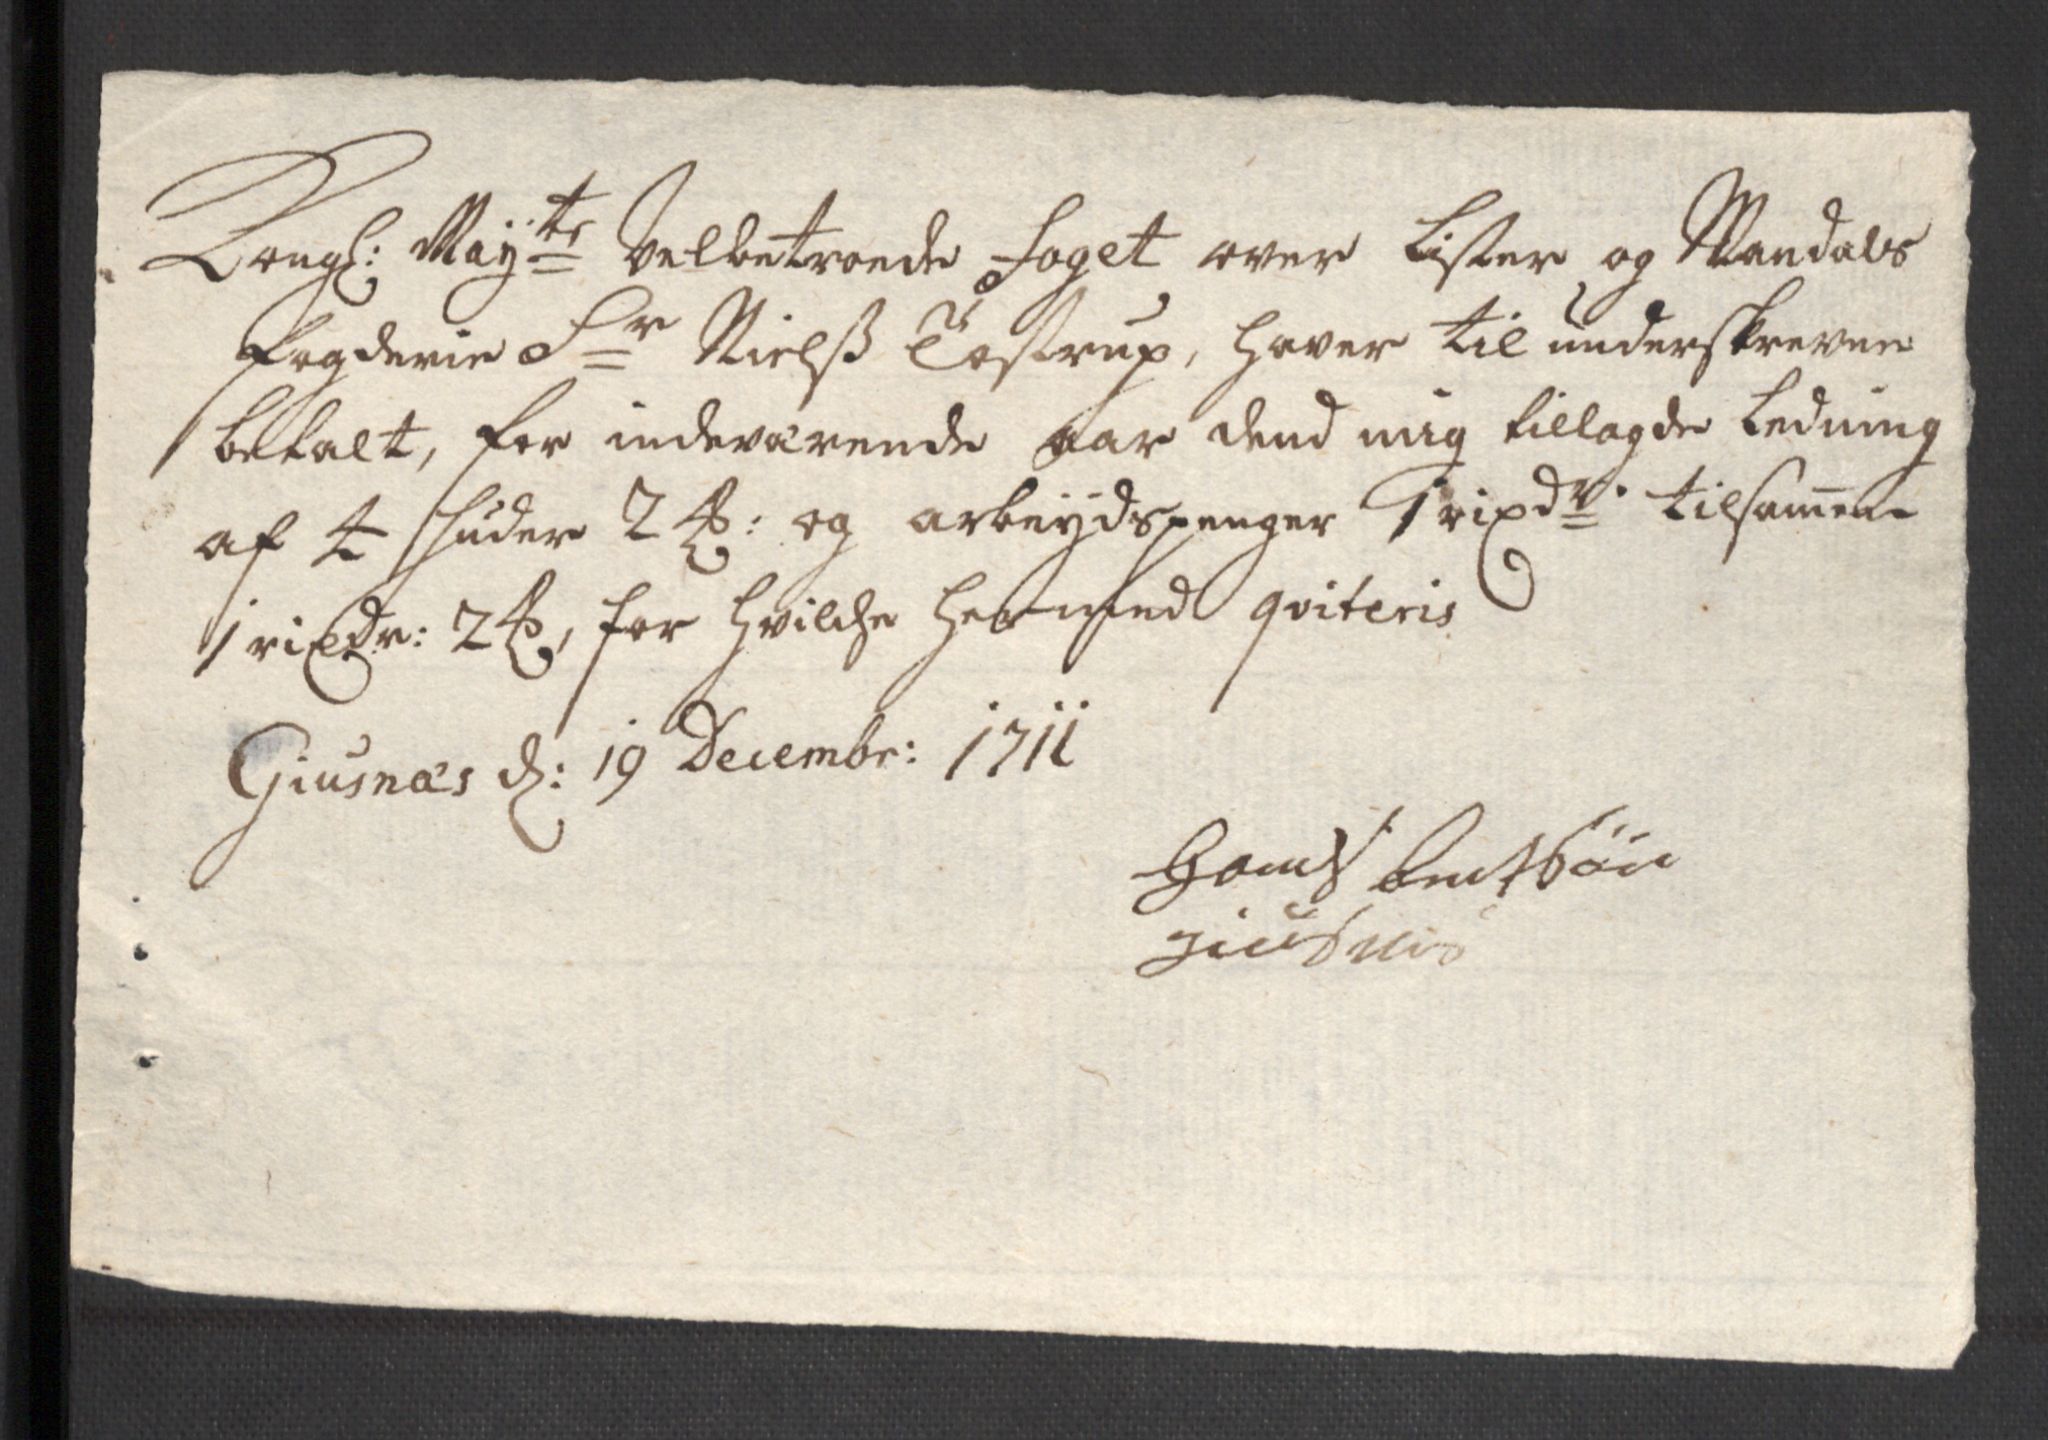 Kongl: May:ts Velbetroede Foget over Lister og Mandals
fogderie Sr Nielß Tostrup, haver til underskreven
betalt, for indeværende aar dend mig tillagde Ledning
af 4 huder 2 ℔: og arbeyds penger 1 rixdr. tilsamen
1 rixdr: 2 ℔, for hvilche hermed qviteris
Giusnæs d: 19 Decembr: 1711
bentsøn